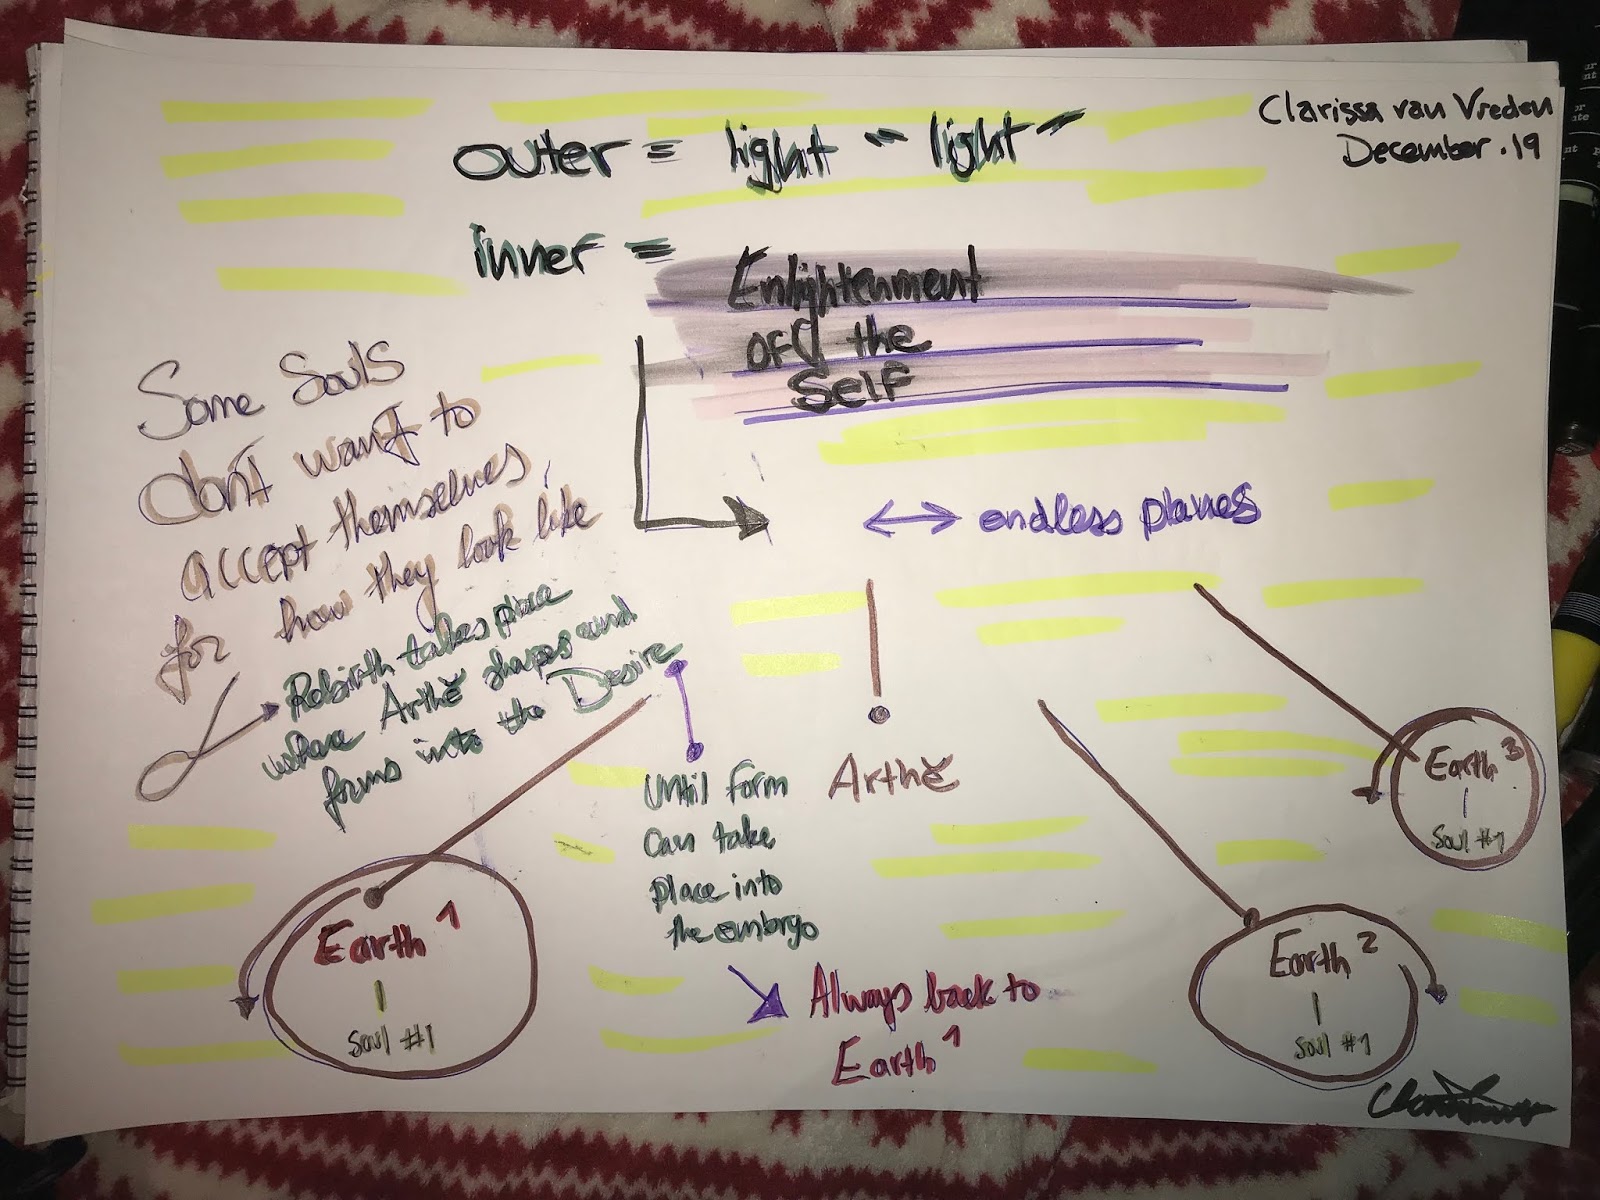 Clarissa van Vreden
December .19
outer = light - light -
inner =
Enlightenment
of the
Self
Some Souls
don't want to
accept themselves,
for how they look like
Rebirth takes place
where Arthĕ shapes and
forms into the Desire
endless planes
Until form
can take
place into
the embrgo
Always back to
Earth 1
Arthĕ
Earth 1
Soul #1
Earth 2
Soul #1
Earth 3
Soul #1